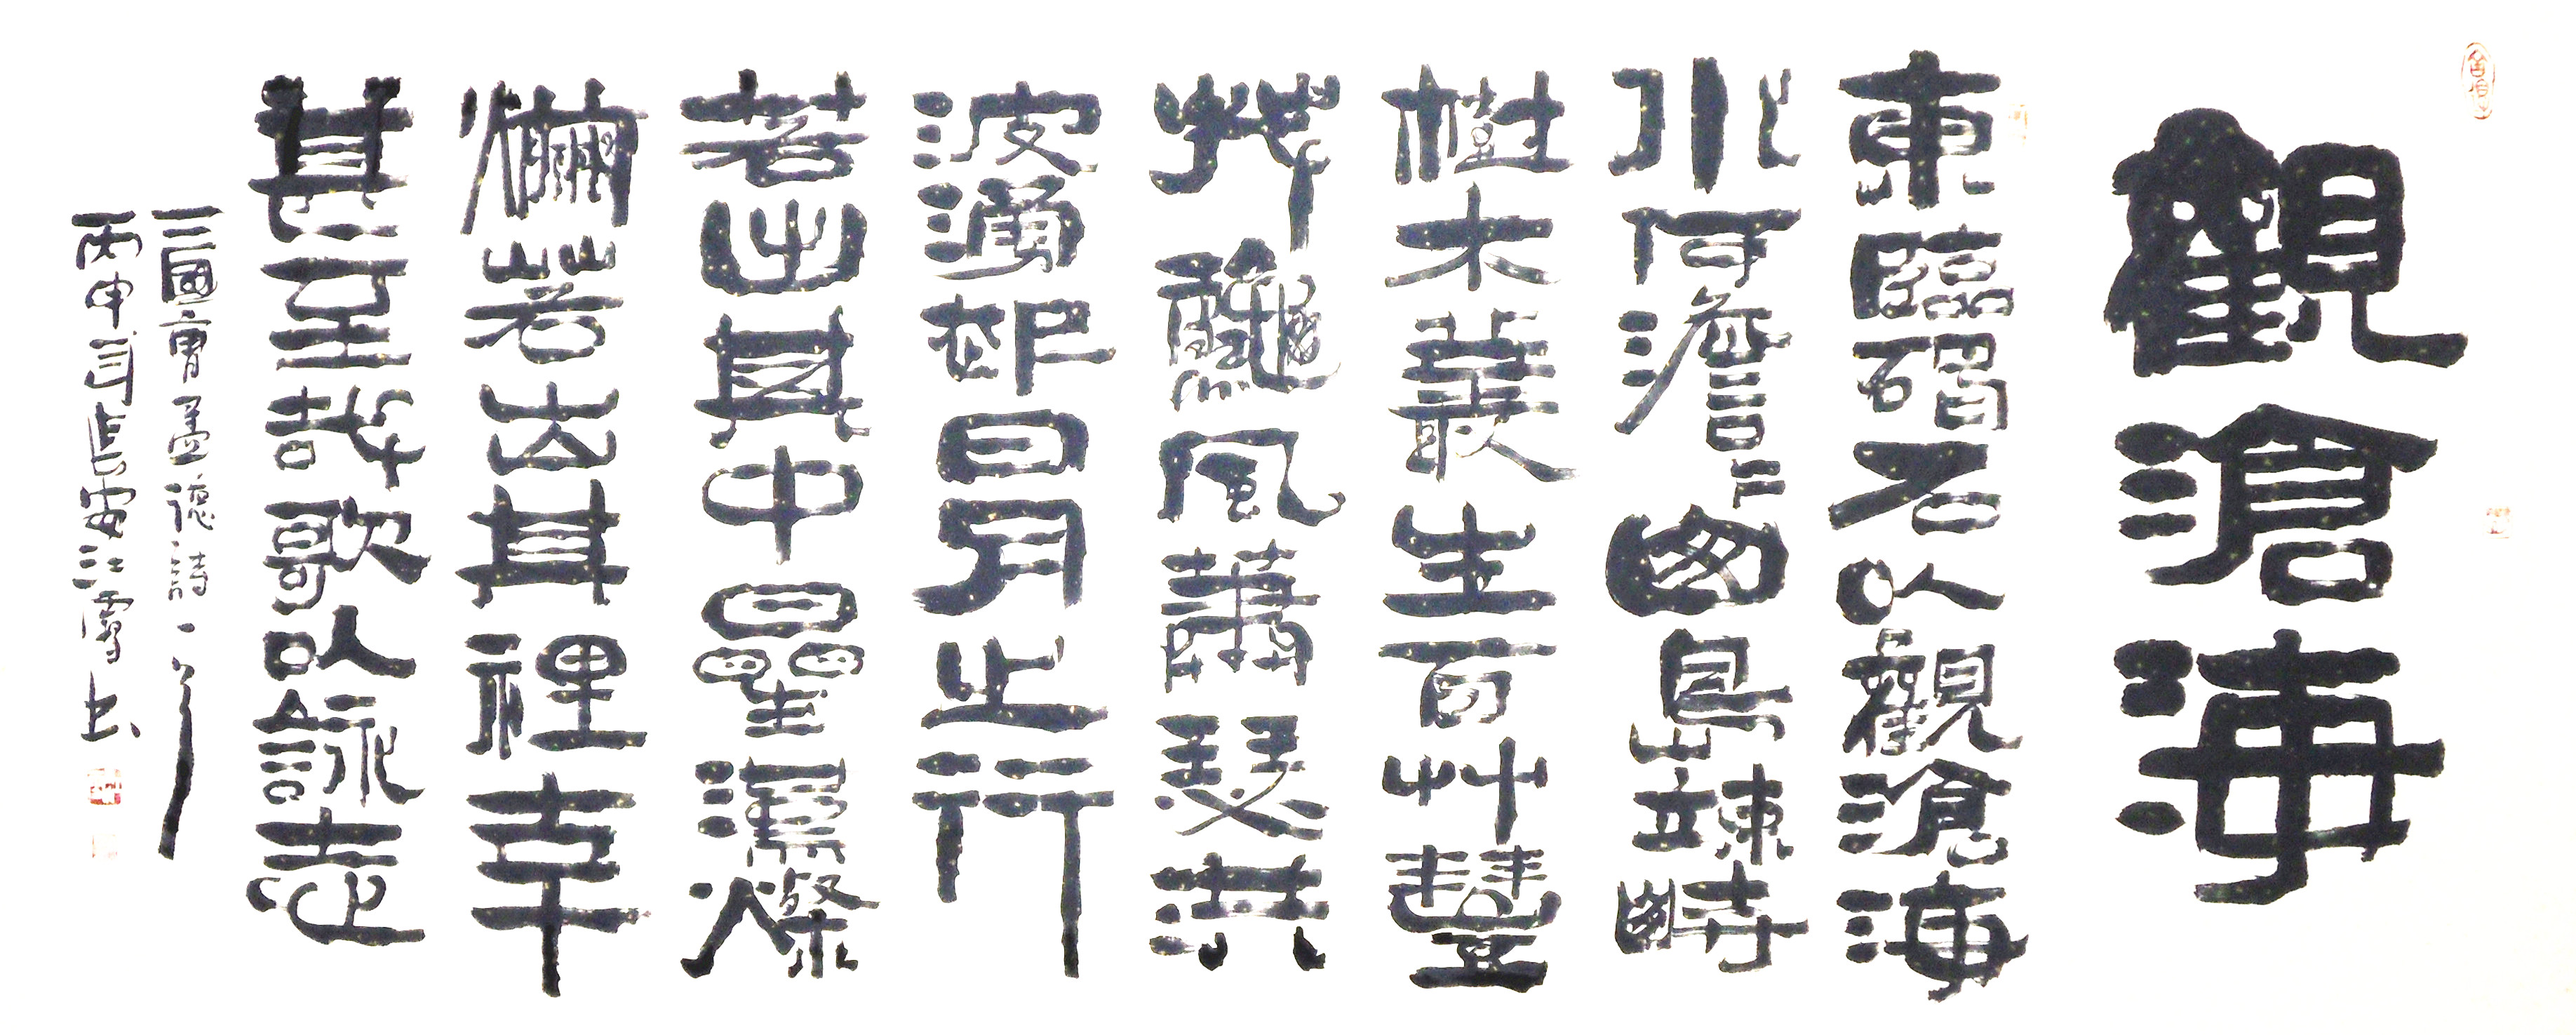 觀滄海
東臨碣石以觀滄海
水何澹〻山島竦峙
樹木叢生百艸豐
茂龝風蕭瑟洪
波涌起日月之行
若出其中星漢燦
爛若出其裡幸
甚至哉歌以詠志
三國曹孟德詩一首
丙申年長安江雪书